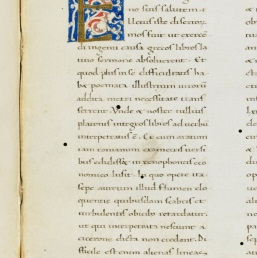 no suis salutem ·
Vetus iste disertoru
mos fuit ut exercen
di ingenii causa grecos libros la
tino sermone absoluerent · Et
quod plus in se difficultatis ha
bet poemata illustrium uirorũ
addita metri necessitate trans
ferrent · Vnde & noster tullius
platonis integros libros ad uerbũ
interpretatus est · Et cum aratum
iam romanum exametris uersi
bus edidisset in xenophontis eco
nomico lusit · In quo opere ita
sepe aureum illud flumen elo
quentie quibusdam scabris et
turbulentis obicibus retardatur
ut qui interpretata nesciunt a
cicerone dicta non credant · Di
fficile est enim alienas lineas